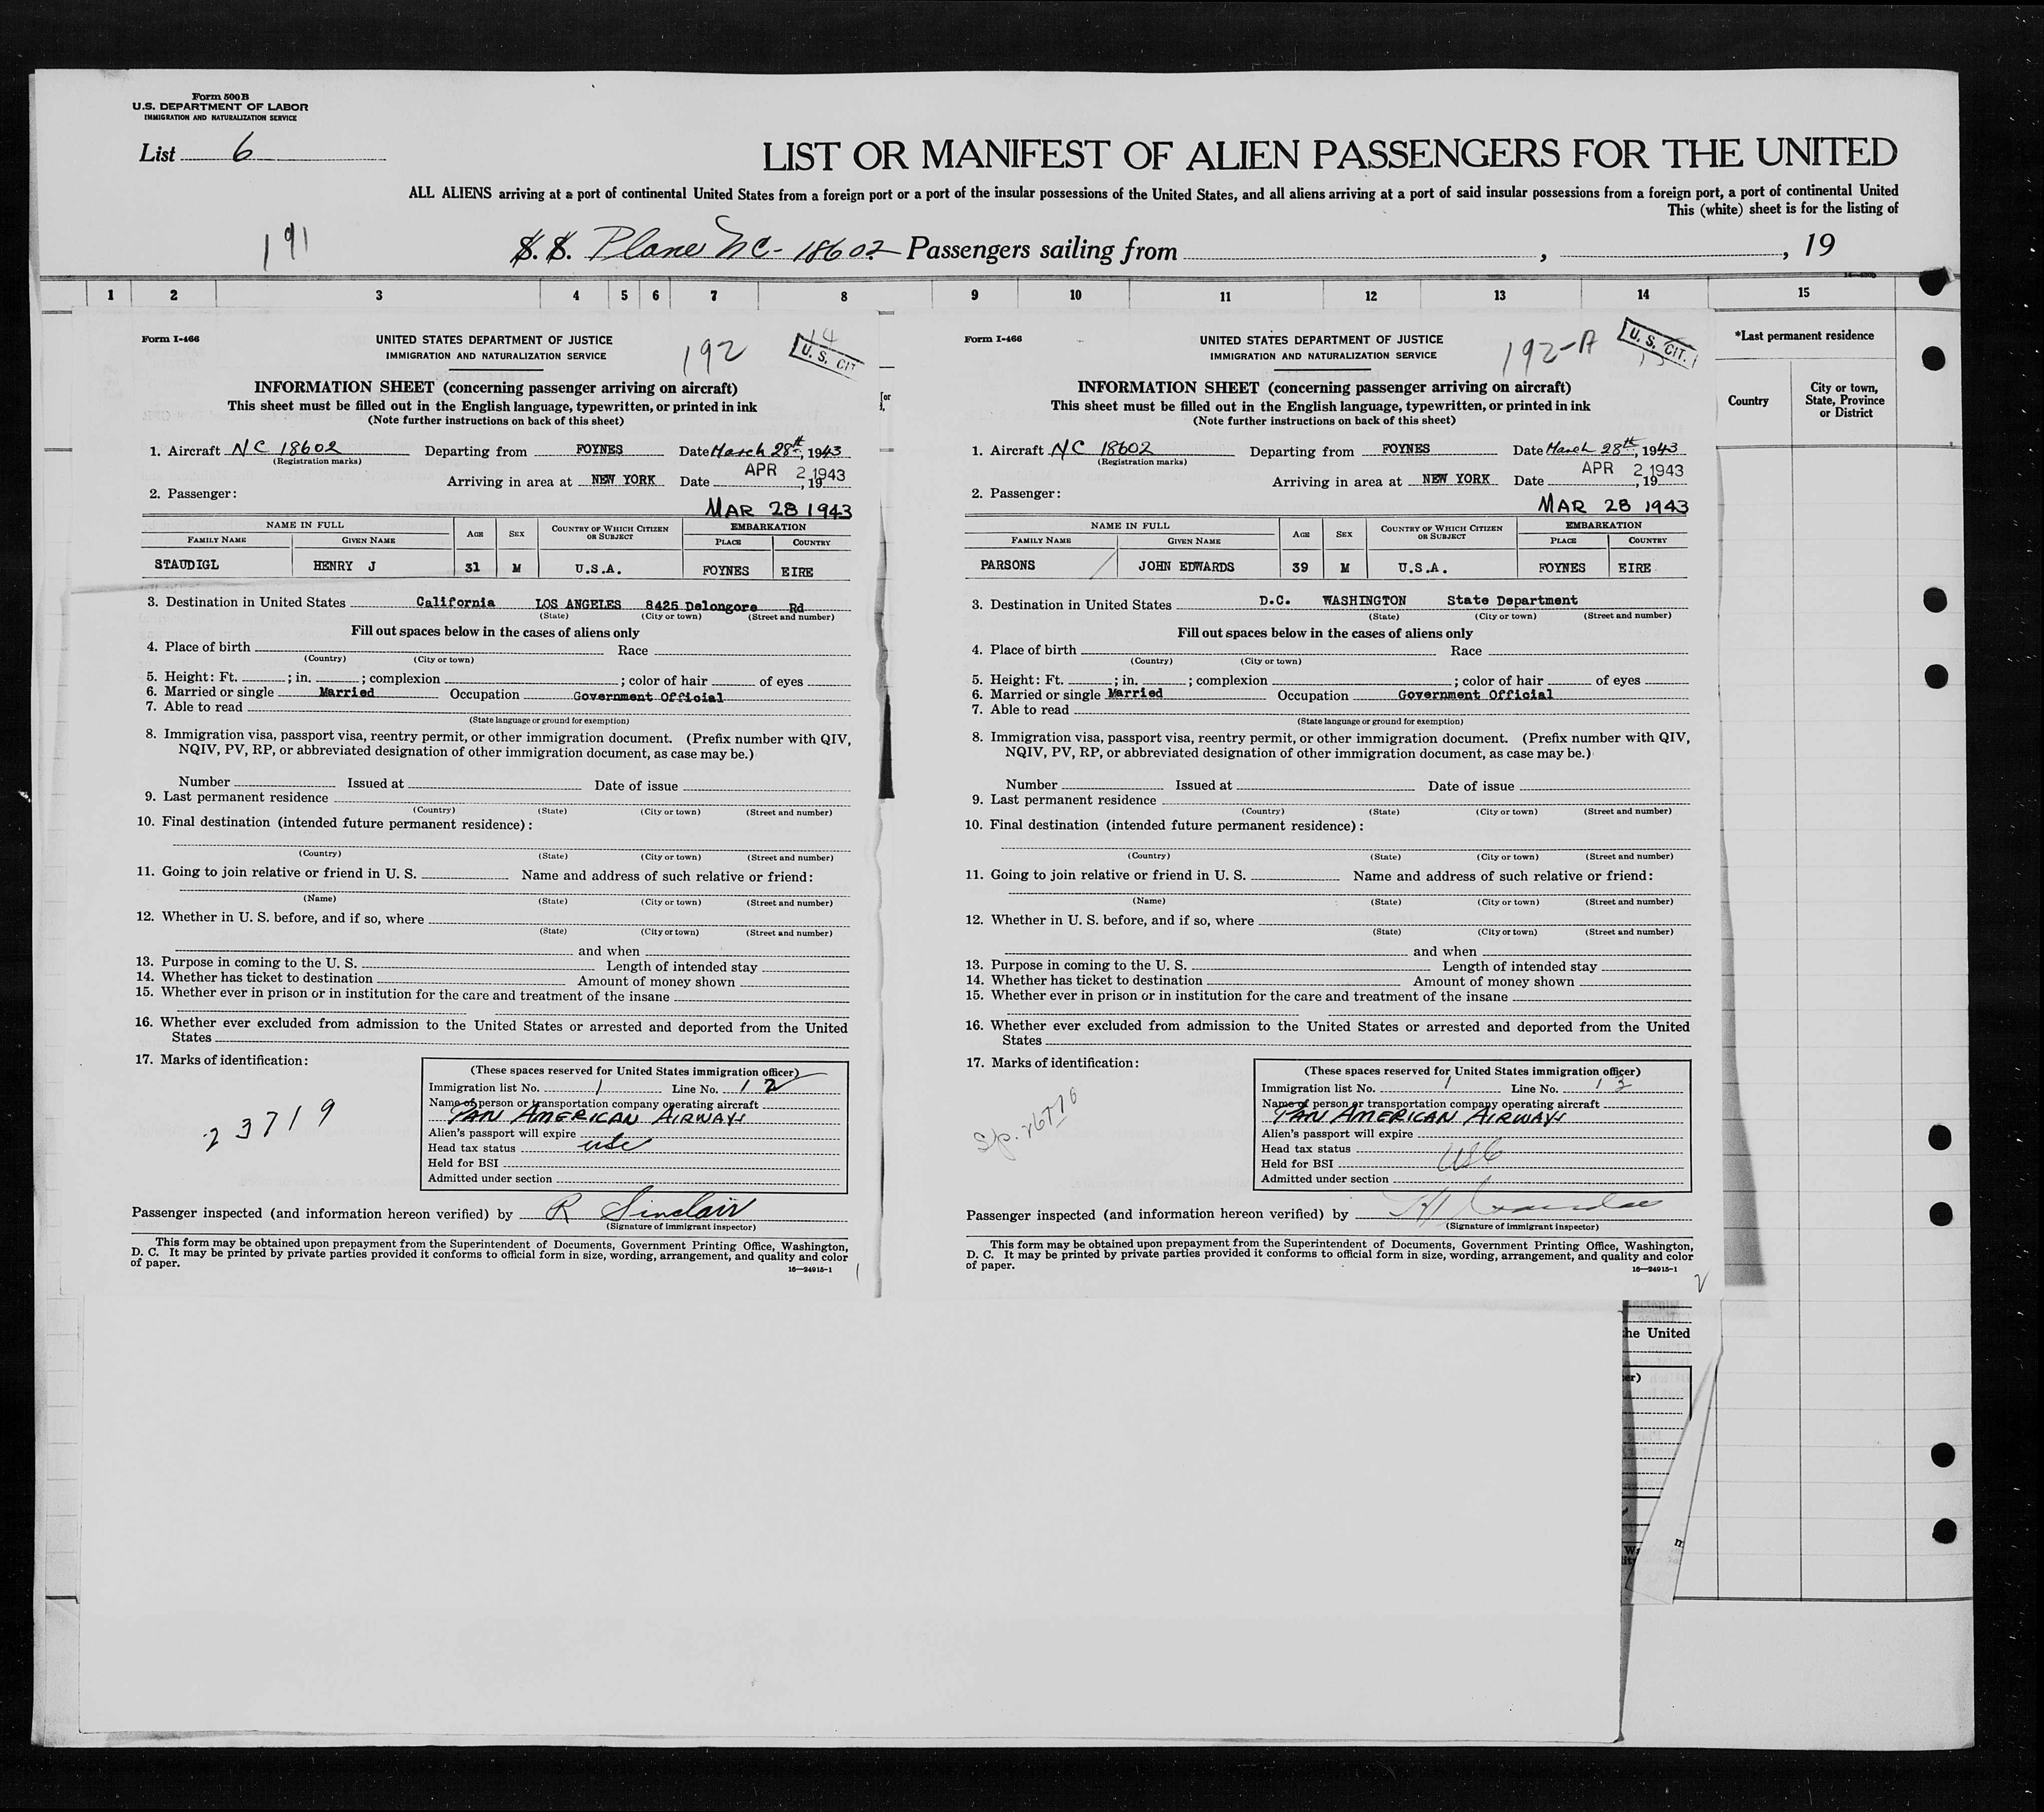 Form 500B
U.S. DEPARTMENT OF LABOR
IMMIGRATION AND NATURALIZATION SERVICE
List 6
LIST OR MANIFEST OF ALIEN PASSENGERS FOR THE UNITED
ALL ALIENS arriving at a port of continental United States from a foreign port or a port of the insular possessions of the United States, and all aliens arriving at a port of said insular possessions from a foreign port, a port of continental United
This (white) sheet is for the listing of
191
S. S. Plane NC-18602 Passengers sailing from , , 19
1 2 3 4 5 6 7 8 9 10 11 12 13 14 15
*Last permanent residence
Country
City or town, State, Province or District
Form I-466
UNITED STATES DEPARTMENT OF JUSTICE
IMMIGRATION AND NATURALIZATION SERVICE
192
14
U. S. CIT.
INFORMATION SHEET (concerning passenger arriving on aircraft)
This sheet must be filled out in the English language, typewritten, or printed in ink
(Note further instructions on back of this sheet)
1. Aircraft NC 18602 Departing from FOYNES Date March 28th, 1943
(Registration marks)
Arriving in area at NEW YORK Date APR 2 1943, 19
2. Passenger:
MAR 28 1943
NAME IN FULL AGE SEX COUNTRY OF WHICH CITIZEN OR SUBJECT EMBARKATION
FAMILY NAME GIVEN NAME PLACE COUNTRY
STAUDIGL HENRY J 31 M U.S.A. FOYNES EIRE
3. Destination in United States California LOS ANGELES 8425 Delongore Rd
(State) (City or town) (Street and number)
Fill out spaces below in the cases of aliens only
4. Place of birth Race
(Country) (City or town)
5. Height: Ft. ; in. ; complexion ; color of hair of eyes
6. Married or single Married Occupation Government Official
7. Able to read
(State language or ground for exemption)
8. Immigration visa, passport visa, reentry permit, or other immigration document. (Prefix number with QIV,
NQIV, PV, RP, or abbreviated designation of other immigration document, as case may be.)
Number Issued at Date of issue
9. Last permanent residence
(Country) (State) (City or town) (Street and number)
10. Final destination (intended future permanent residence):
(Country) (State) (City or town) (Street and number)
11. Going to join relative or friend in U. S. Name and address of such relative or friend:
(Name) (State) (City or town) (Street and number)
12. Whether in U. S. before, and if so, where
(State) (City or town) (Street and number)
and when
13. Purpose in coming to the U. S. Length of intended stay
14. Whether has ticket to destination Amount of money shown
15. Whether ever in prison or in institution for the care and treatment of the insane
16. Whether ever excluded from admission to the United States or arrested and deported from the United
States
17. Marks of identification:
23719
(These spaces reserved for United States immigration officer)
Immigration list No. 1 Line No. 12
Name of person or transportation company operating aircraft
PAN AMERICAN AIRWAYS
Alien's passport will expire
Head tax status usc
Held for BSI
Admitted under section
Passenger inspected (and information hereon verified) by R Sinclair
(Signature of immigrant inspector)
This form may be obtained upon prepayment from the Superintendent of Documents, Government Printing Office, Washington,
D. C. It may be printed by private parties provided it conforms to official form in size, wording, arrangement, and quality and color
of paper.
16—24915-1
1
Form I-466
UNITED STATES DEPARTMENT OF JUSTICE
IMMIGRATION AND NATURALIZATION SERVICE
192-A
U. S. CIT.
INFORMATION SHEET (concerning passenger arriving on aircraft)
This sheet must be filled out in the English language, typewritten, or printed in ink
(Note further instructions on back of this sheet)
1. Aircraft NC 18602 Departing from FOYNES Date March 28th, 1943
(Registration marks)
Arriving in area at NEW YORK Date APR 2 1943, 19
2. Passenger:
MAR 28 1943
NAME IN FULL AGE SEX COUNTRY OF WHICH CITIZEN OR SUBJECT EMBARKATION
FAMILY NAME GIVEN NAME PLACE COUNTRY
PARSONS JOHN EDWARDS 39 M U.S.A. FOYNES EIRE
3. Destination in United States D.C. WASHINGTON State Department
(State) (City or town) (Street and number)
Fill out spaces below in the cases of aliens only
4. Place of birth Race
(Country) (City or town)
5. Height: Ft. ; in. ; complexion ; color of hair of eyes
6. Married or single Married Occupation Government Official
7. Able to read
(State language or ground for exemption)
8. Immigration visa, passport visa, reentry permit, or other immigration document. (Prefix number with QIV,
NQIV, PV, RP, or abbreviated designation of other immigration document, as case may be.)
Number Issued at Date of issue
9. Last permanent residence
(Country) (State) (City or town) (Street and number)
10. Final destination (intended future permanent residence):
(Country) (State) (City or town) (Street and number)
11. Going to join relative or friend in U. S. Name and address of such relative or friend:
(Name) (State) (City or town) (Street and number)
12. Whether in U. S. before, and if so, where
(State) (City or town) (Street and number)
and when
13. Purpose in coming to the U. S. Length of intended stay
14. Whether has ticket to destination Amount of money shown
15. Whether ever in prison or in institution for the care and treatment of the insane
16. Whether ever excluded from admission to the United States or arrested and deported from the United
States
17. Marks of identification:
(These spaces reserved for United States immigration officer)
Immigration list No. 1 Line No. 13
Name of person or transportation company operating aircraft
PAN AMERICAN AIRWAYS
Alien's passport will expire
Head tax status
Held for BSI USC
Admitted under section
Passenger inspected (and information hereon verified) by
(Signature of immigrant inspector)
This form may be obtained upon prepayment from the Superintendent of Documents, Government Printing Office, Washington,
D. C. It may be printed by private parties provided it conforms to official form in size, wording, arrangement, and quality and color
of paper.
16—24915-1
2
he United
er)